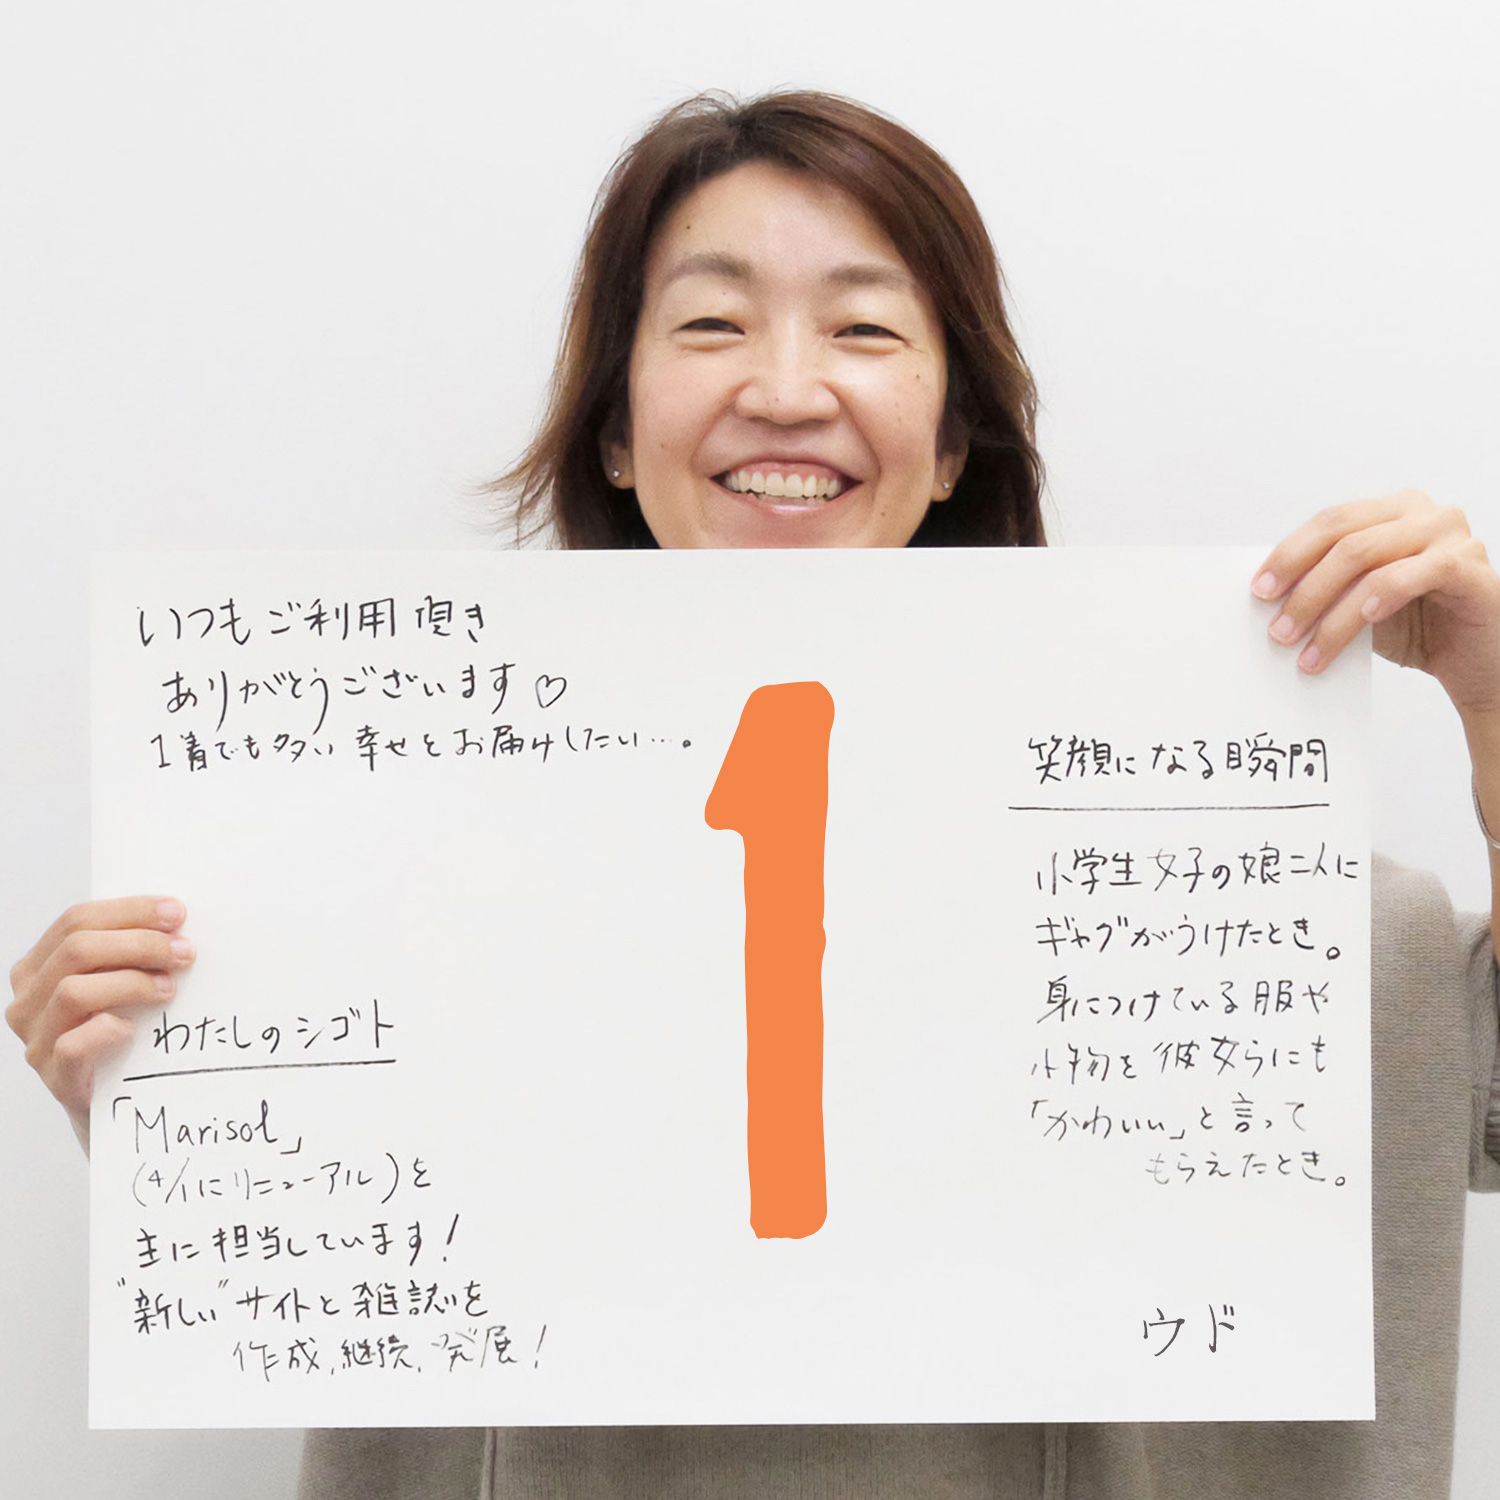 いつもご利用頂き
ありがとうございます♡
1着でも多い幸せをお届けしたい…。
1
笑顔になる瞬間
小学生女子の娘二人に
ギャグがうけたとき。
身につけている服や
小物を彼女らにも
「かわいい」と言って
もらえたとき。
わたしのシゴト
「Marisol」
(4/1にリニューアル)を
主に担当しています!
"新しい"サイトと雑誌を
作成,継続,発展!
ウド